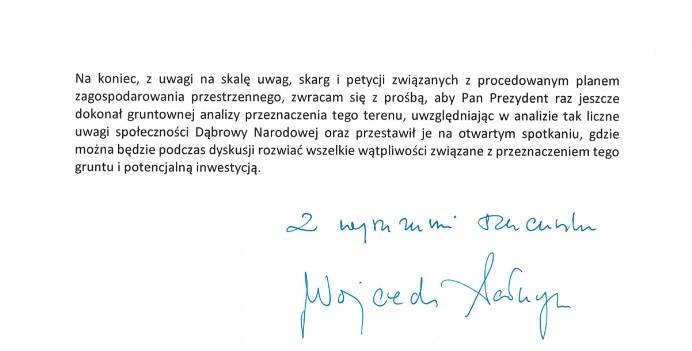 Na koniec, z uwagi na skalę uwag, skarg i petycji związanych z procedowanym planem
zagospodarowania przestrzennego, zwracam się z prośbą, aby Pan Prezydent raz jeszcze
dokonał gruntownej analizy przeznaczenia tego terenu, uwzględniając w analizie tak liczne
uwagi społeczności Dąbrowy Narodowej oraz przestawił je na otwartym spotkaniu, gdzie
można będzie podczas dyskusji rozwiać wszelkie wątpliwości związane z przeznaczeniem tego
gruntu i potencjalną inwestycją.
Z wyrazami szacunku
Wojciech